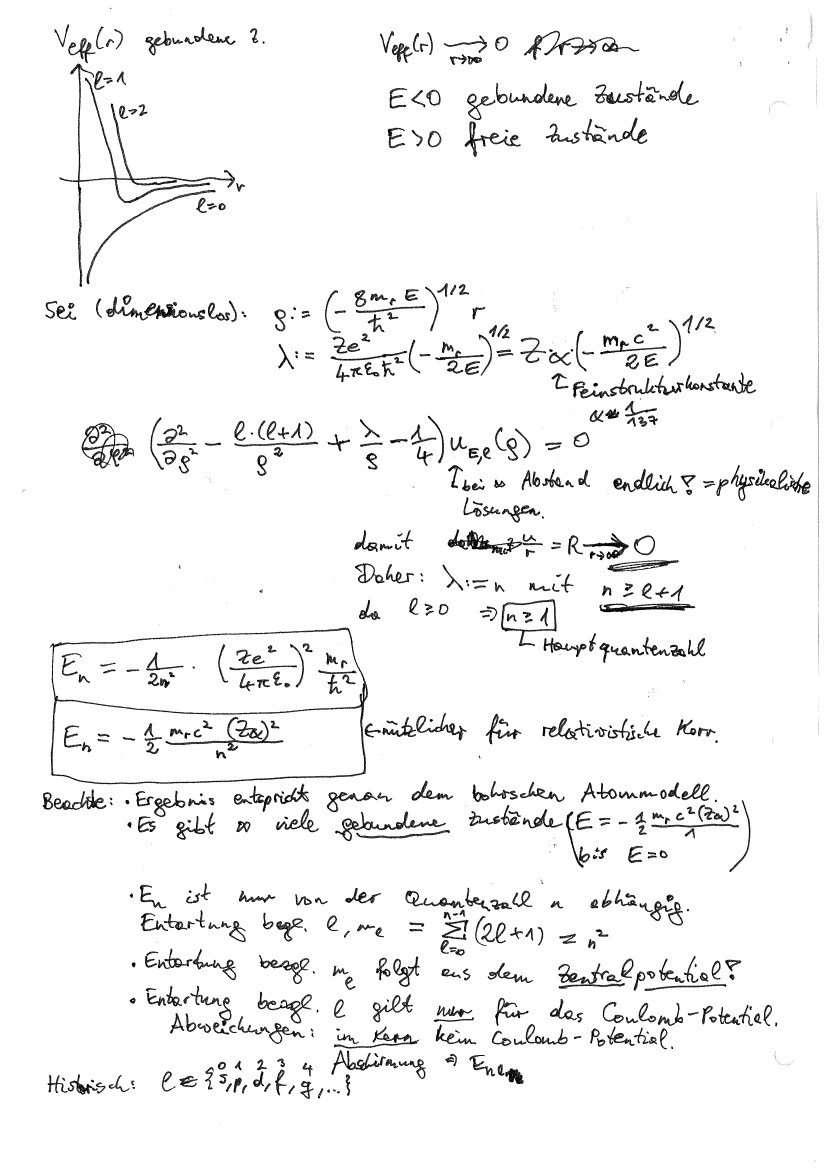 V_eff(r) gebundene Z.
l=1
l=2
r
l=0
V_eff(r) →_{r→∞} 0
E<0 gebundene Zustände
E>0 freie Zustände
Sei (dimensionslos): ρ := (- 8m_r E / ħ²)^{1/2} r
λ := Ze² / 4πε₀ħ² (- m_r / 2E)^{1/2} = Zα (- m_r c² / 2E)^{1/2}
↑ Feinstrukturkonstante
α ≈ 1/137
(∂²/∂ρ² - l·(l+1)/ρ² + λ/ρ - 1/4) u_{E,l}(ρ) = 0
↑ bei ∞ Abstand endlich! = physikalische
Lösungen.
damit u/r = R →_{r→∞} 0
Daher: λ := n mit n ≥ l+1
da l ≥ 0 ⇒ n ≥ 1
Hauptquantenzahl
E_n = - 1/2n² · (Ze² / 4πε₀)² m_r / ħ²
E_n = - 1/2 m_r c² (Zα)² / n² ← nützlicher für relativistische Korr.
Beachte: · Ergebnis entspricht genau dem bohrschen Atommodell.
· Es gibt ∞ viele gebundene Zustände (E = - 1/2 m_r c² (Zα)² / 1
bis E=0)
· E_n ist nur von der Quantenzahl n abhängig.
Entartung bzgl. l, m_l = Σ_{l=0}^{n-1} (2l+1) = n²
· Entartung bezgl. m_l folgt aus dem Zentralpotential!
· Entartung bezgl. l gilt nur für das Coulomb-Potential.
Abweichungen: im Kern kein Coulomb-Potential.
Abschirmung ⇒
0 1 2 3 4
Historisch: l ∈ {s, p, d, f, g, ...}